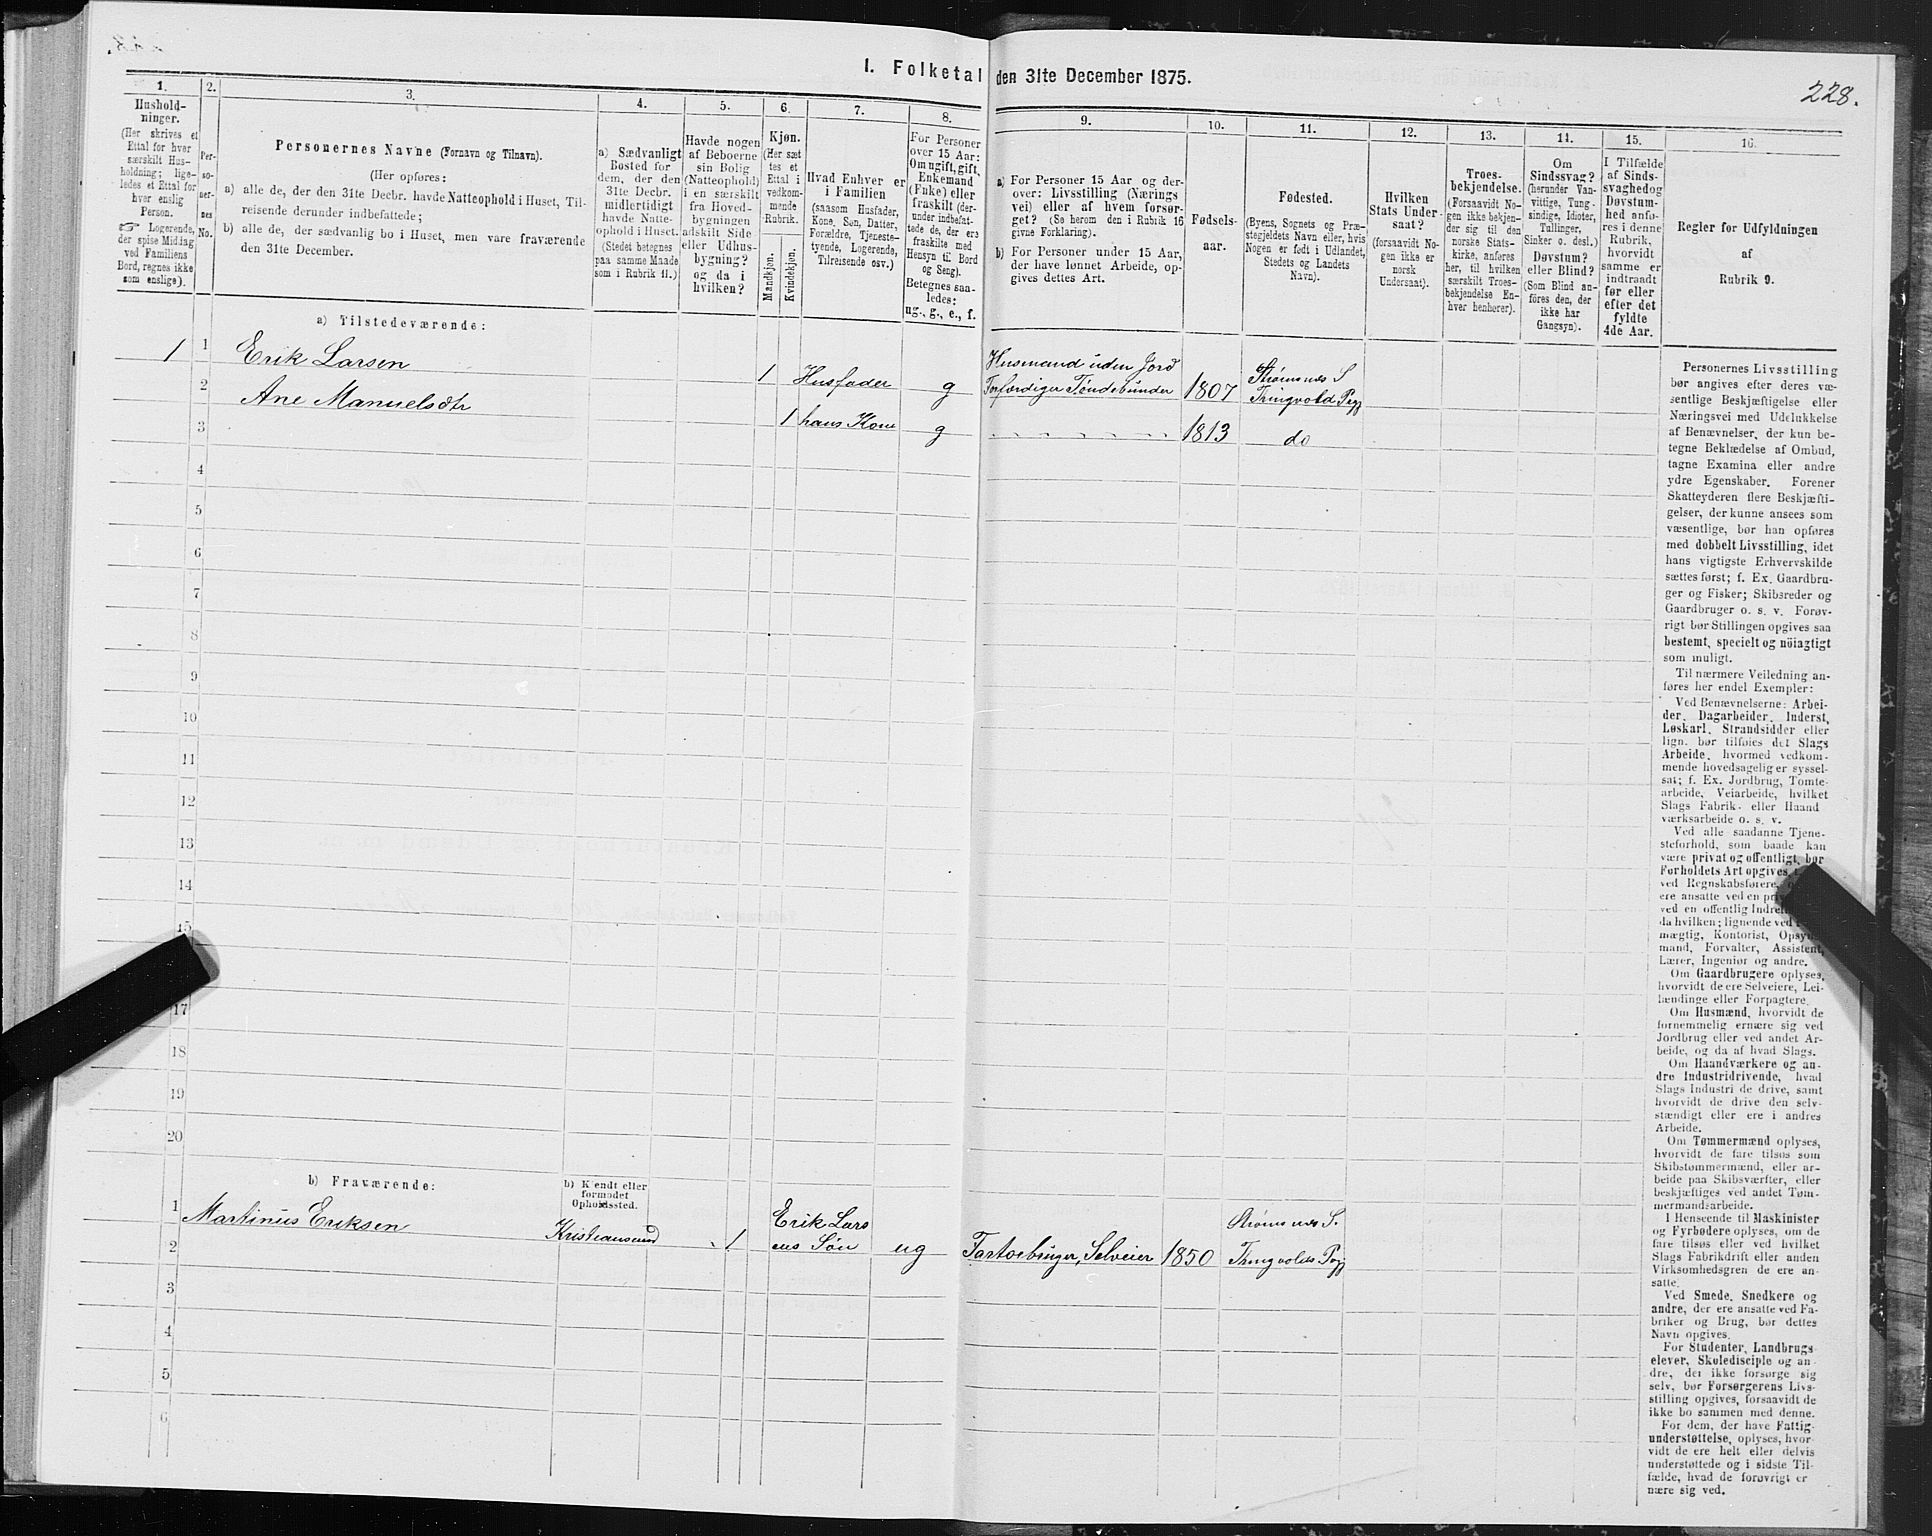 I. Folketal den 31te December 1875.
228.
1.
Hushold-
ninger.
(Her skrives et
Ettal for hver
særskilt Hus-
holdning; lige-
ledes et Ettal for
hver enslig
Person.
Logerende,
der spise Middag
ved Familiens
Bord, regnes ikke
som enslige).
2.
Per-
so-
ner-
nes
No.
3.
Personernes Navne (Fornavn og Tilnavn).
(Her opføres:
a) alle de, der den 31te Decbr. havde Natteophold i Huset, Til-
reisende derunder indbefattede;
b) alle de, der sædvanlig bo i Huset, men vare fraværende
den 31te December.
4.
a) Sædvanligt
Bosted for
dem, der den
31te Decbr.
midlertidigt
havde Natte-
ophold i Huset.
(Stedet betegnes
paa samme Maade
som i Rubrik 11.)
5.
Havde nogen
af Beboerne
sin Bolig
(Natteophold)
i en særskilt
fra Hoved-
bygningen
adskilt Side
eller Udhus-
bygning?
og da i
hvilken?
6.
Kjøn.
(Her sæt
tes et
Ettal i
vedkom-
mende
Rubrik.
Mandkjøn.
Kvindekjøn.
7.
Hvad Enhver er
i Familien
(saasom Husfader,
Kone, Søn, Datter,
Forældre, Tjeneste-
tyende, Logerende,
Tilreisende osv.)
8.
For Personer
over 15 Aar:
Om ugift, gift,
Enkemand
(Enke) eller
fraskilt (der-
under indbefat-
tede de, der ere
fraskilte med
Hensyn til Bord
og Seng).
Betegnes saa-
ledes:
ug., g., e., f.
9.
a) For Personer 15 Aar og der-
over: Livsstilling (Nærings
vei) eller af hvem forsør-
get? (Se herom den i Rubrik 16
givne Forklaring).
b) For Personer under 15 Aar,
der have lønnet Arbeide, op-
gives dettes Art.
10.
Fødsels-
aar.
11.
Fødested.
(Byens, Sognets og Præ-
stegjeldets Navn eller, hvis
Nogen er født i Udlandet,
Stedets og Landets
Navn).
12.
Hvilken
Stats Under-
saat?
(forsaavidt No-
gen ikke er
norsk
Undersaat).
13.
Troes-
bekjendelse.
(Forsaavidt No-
gen ikke bekjen-
der sig til den
norske Stats-
kirke, anføres
her, til hvilken
særskilt Troes-
bekjendelse En-
hver henhører).
14.
Om
Sindssvag?
(herunder Van-
vittige, Tung-
sindige, Idioter,
Tullinger,
Sinker o. desl.)
Døvstum?
eller Blind?
(Som Blind an-
føres den, der
ikke har
Gangsyn).
15.
I Tilfælde
af Sinds-
svaghed og
Døvstum-
hed anfø-
res i denne
Rubrik,
hvorvidt
samme er
indtraadt
før eller
efter det
fyldte
4de Aar.
16.
Regler for Udfyldningen
af
Rubrik 9.
a) Tilstedeværende:
1 1 Erik Larsen 1 Husfader g Husmand uden Jord
Tøndebinder 1807 Strømsnes S
Thingvold Pgj
2 Ane Manuelsdtr 1 hans Kone g 1813 do
3
4
5
6
7
8
9
10
11
12
13
14
15
17
18
19
20
b) Fraværende:
b) Kjendt eller
formodet
Opholdssted.
1 Martinus Eriksen Kristiansund 1 Erik Lars
ens Søn ug Selveier 1850 Strømsnes S.
Thingvolds Pgj
2
3
4
5
6
Personernes Livsstilling
bør angives efter deres væ-
sentlige Beskjæftigelse eller
Næringsvei med Udelukkelse
af Benævnelser, der kun be-
tegne Beklædelse af Ombud,
tagne Examina eller andre
ydre Egenskaber. Forener
Skatteyderen flere Beskjæfti-
gelser, der kunne ansees som
væsentlige, bør han opføres
med dobbelt Livsstilling, idet
hans vigtigste Erhvervskilde
sættes først; f. Ex. Gaardbru-
ger og Fisker; Skibsreder og
Gaardbruger o. s. v. Forøv-
rigt bør Stillingen opgives saa
bestemt, specielt og nöiagtigt
som muligt.
Til nærmere Veiledning an-
føres her endel Exempler:
Ved Benævnelserne: Arbei-
der, Dagarbeider, Inderst,
Løskarl, Strandsidder eller
lign. bør tilføies det Slags
Arbeide, hvormed vedkom-
mende hovedsagelig er syssel-
sat; f. Ex. Jordbrug, Tomte-
arbeide, Veiarbeide, hvilket
Slags Fabrik- eller Haand
værksarbeide o. s. v.
Ved alle saadanne Tjene-
steforhold, som baade kan
være privat og offentligt, bør
Forholdets Art opgives,
ved Regnskabsførere,
ere ansatte ved en
ved en offentlig
da hvilken; lignende ved
mægtig, Kontorist,
mand, Forvalter, Assistent,
Lærer, Ingeniør og andre.
Om Gaardbrugere oplyses,
hvorvidt de ere Selveiere, Lei-
lændinge eller Forpagtere.
Om Husmænd, hvorvidt de
fornemmelig ernære sig ved
Jordbrug eller ved andet Ar-
beide, og da af hvad Slags.
Om Haandværkere og an-
dre Industridrivende, hvad
Slags Industri de drive, samt
hvorvidt de drive den selv-
stændigt eller ere i andres
Arbeide.
Om Tømmermænd oplyses,
hvorvidt de fare tilsøs som
Skibstømmermænd, eller ar-
beide paa Skibsværfter, eller
beskjæftiges ved andet Tøm-
mermandsarbeide.
I Henseende til Maskinister
og Fyrbødere oplyses, om de
fare tilsøs eller ved hvilket
Slags Fabrikdrift eller anden
Virksomhedsgren de ere an-
satte.
Ved Smede, Snedkere og
andre, der ere ansatte ved Fa-
briker og Brug, bør dettes
Navn opgives.
For Studenter, Landbrugs
elever, Skoledisciple og an-
dre, der ikke forsørge sig
selv, bør Forsørgerens Livs-
stilling opgives, forsaavidt de
ikke bo sammen med denne.
For dem, der have Fattig-
understøttelse, oplyses, hvor-
vidt de ere helt eller delvis
understøttede og i sidste Til-
fælde, hvad de forøvrigt er
nære sig ved.